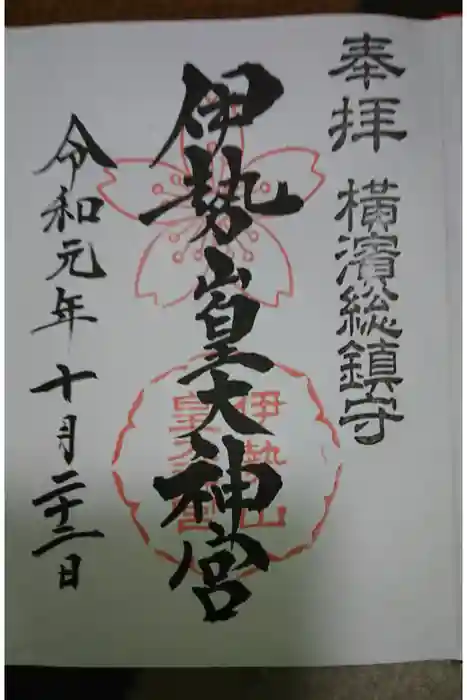 奉拝 横濱総鎮守
伊勢山皇大神宮
伊勢山
皇大神宮
令和元年十月二十二日